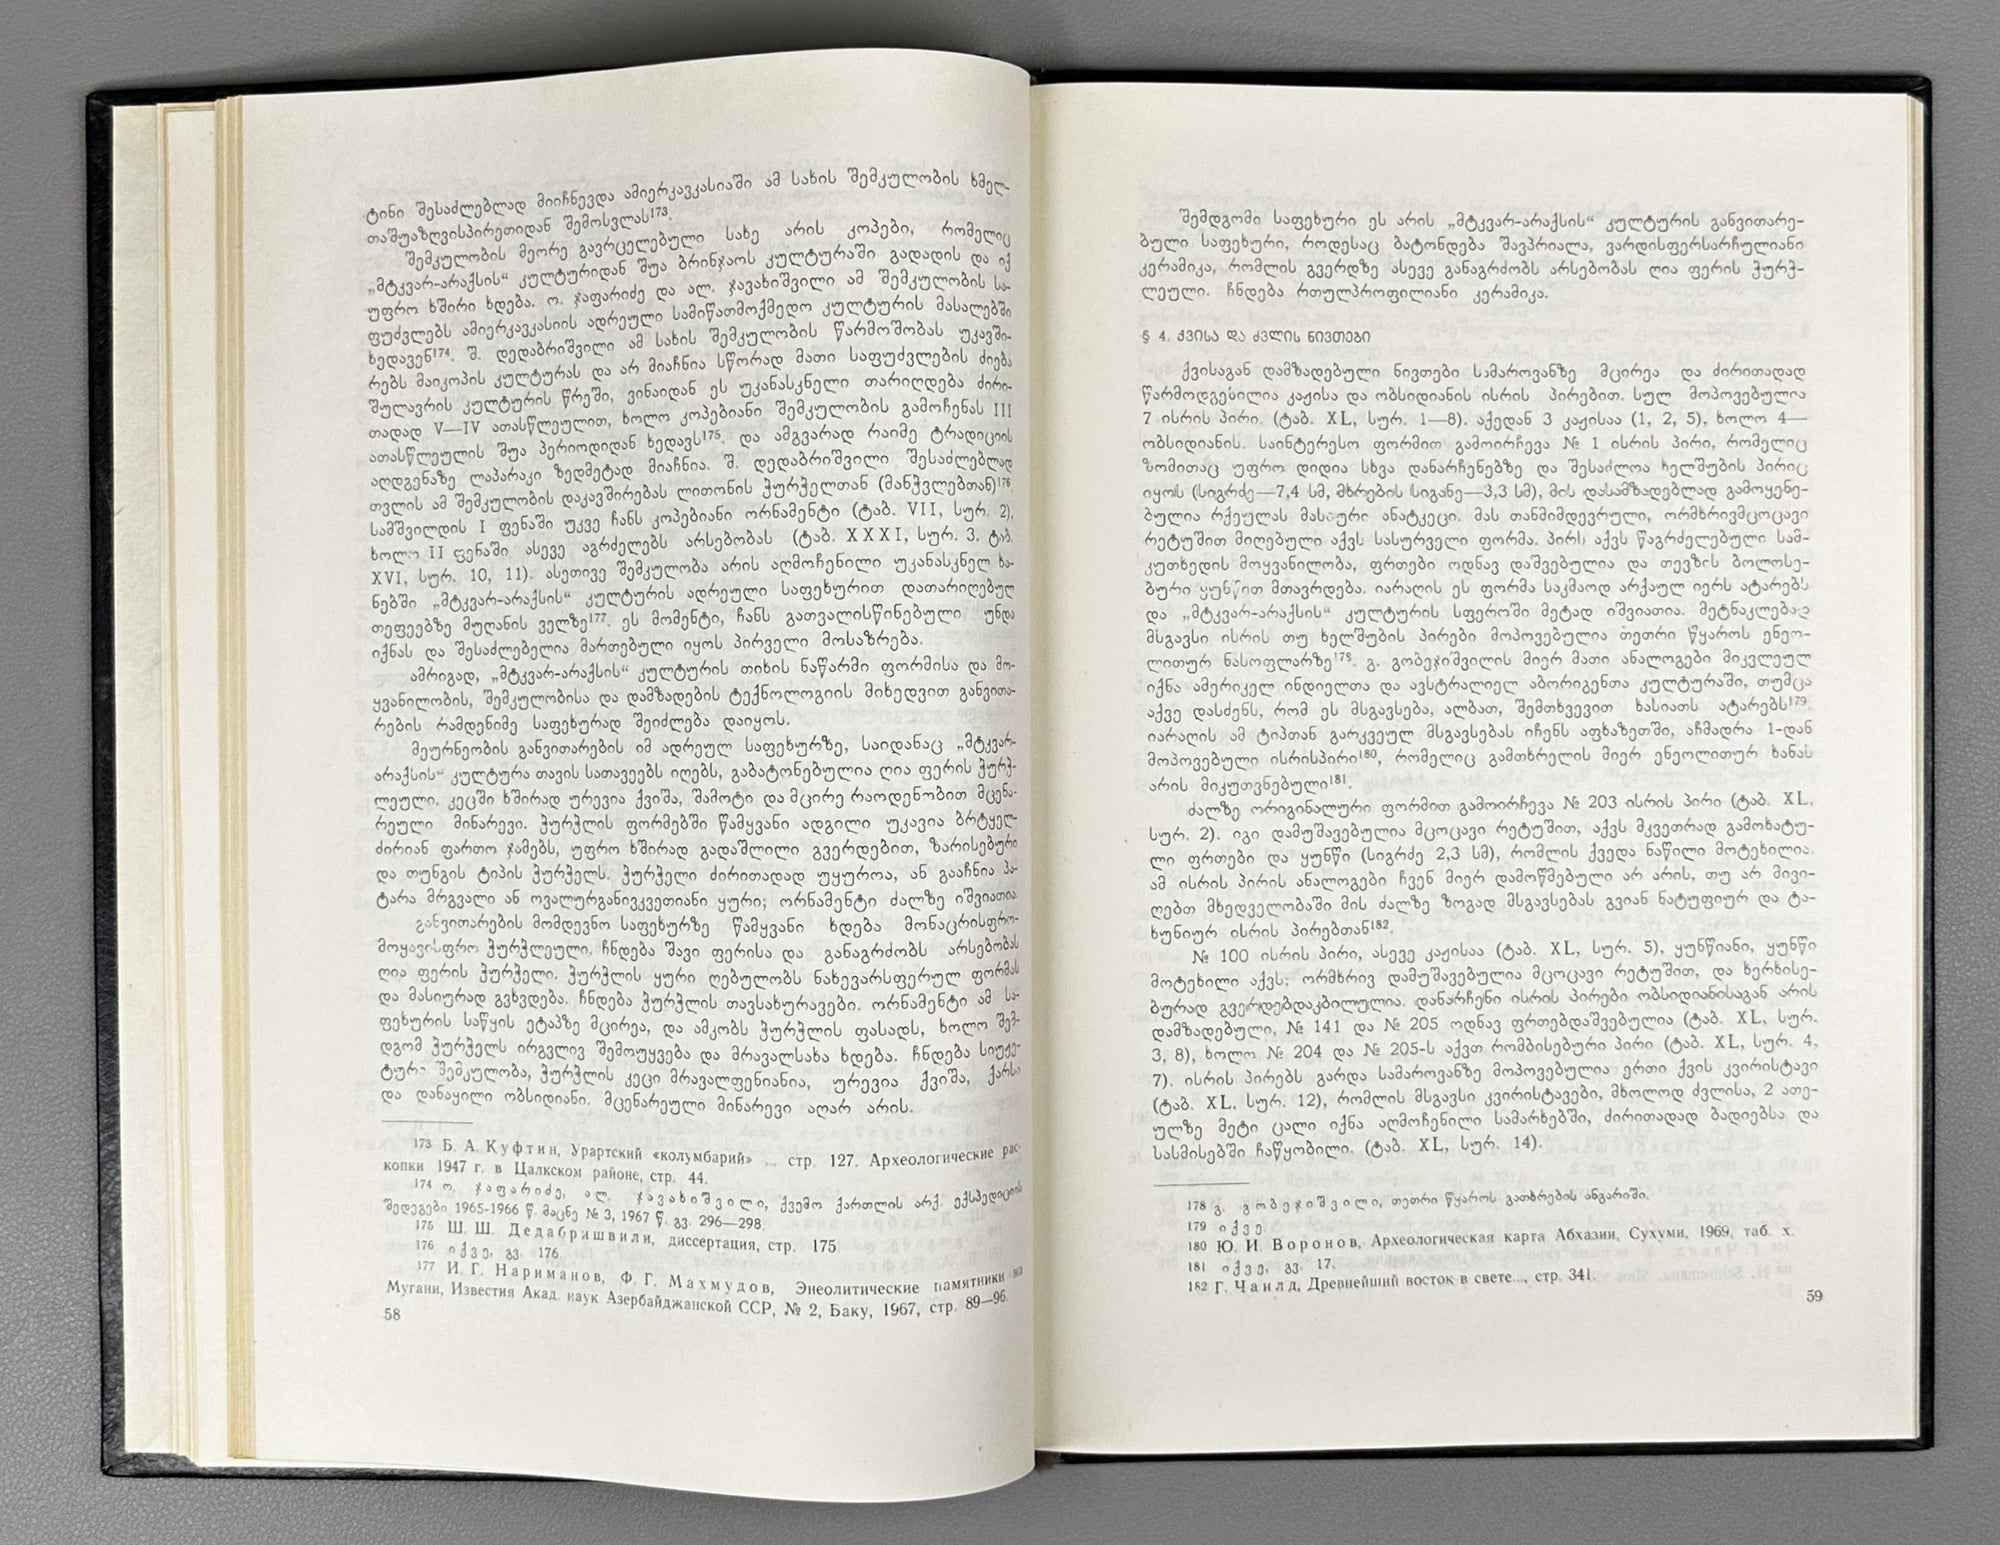 ტინი შესაძლებლად მიიჩნევდა ამიერკავკასიაში ამ სახის შემკულობის ხმელ-
თაშუაზღვისპირეთიდან შემოსვლას¹⁷³.
შემკულობის მეორე გავრცელებული სახე არის კოპები, რომელიც
„მტკვარ-არაქსის“ კულტურიდან შუა ბრინჯაოს კულტურაში გადადის და იქ
უფრო ხშირი ხდება. ო. ჯაფარიძე და ალ. ჯავახიშვილი ამ შემკულობის სა-
ფუძვლებს ამიერკავკასიის ადრეული სამიწათმოქმედო კულტურის მასალებში
ხედავენ¹⁷⁴. შ. დედაბრიშვილი ამ სახის შემკულობის წარმოშობას უკავში-
რებს მაიკოპის კულტურას და არ მიაჩნია სწორად მათი საფუძვლების ძიება
შულავრის კულტურის წრეში, ვინაიდან ეს უკანასკნელი თარიღდება ძირი-
თადად V—IV ათასწლეულით, ხოლო კოპებიანი შემკულობის გამოჩენას III
ათასწლეულის შუა პერიოდიდან ხედავს¹⁷⁵. და ამგვარად რაიმე ტრადიციის
აღდგენაზე ლაპარაკი ზედმეტად მიაჩნია. შ. დედაბრიშვილი შესაძლებლად
თვლის ამ შემკულობის დაკავშირებას ლითონის ჭურჭელთან (მანჭვლებთან)¹⁷⁶.
სამშვილდის I ფენაში უკვე ჩანს კოპებიანი ორნამენტი (ტაბ. VII, სურ. 2),
ხოლო II ფენაში ასევე აგრძელებს არსებობას (ტაბ. XXXI, სურ. 3. ტაბ.
XVI, სურ. 10, 11). ასეთივე შემკულობა არის აღმოჩენილი უკანასკნელ ხა-
ნებში „მტკვარ-არაქსის“ კულტურის ადრეული საფეხურით დათარიღებულ
თეფეებზე მუღანის ველზე¹⁷⁷. ეს მომენტი, ჩანს გათვალისწინებული უნდა
იქნას და შესაძლებელია მართებული იყოს პირველი მოსაზრება.
ამრიგად, „მტკვარ-არაქსის“ კულტურის თიხის ნაწარმი ფორმისა და მო-
ყვანილობის, შემკულობისა და დამზადების ტექნოლოგიის მიხედვით განვითა-
რების რამდენიმე საფეხურად შეიძლება დაიყოს.
მეურნეობის განვითარების იმ ადრეულ საფეხურზე, საიდანაც „მტკვარ-
არაქსის“ კულტურა თავის სათავეებს იღებს, გაბატონებულია ღია ფერის ჭურჭ-
ლეული. კეცში ხშირად ურევია ქვიშა, შამოტი და მცირე რაოდენობით მცენა-
რეული მინარევი. ჭურჭლის ფორმებში წამყვანი ადგილი უკავია ბრტყელ-
ძირიან ფართო ჯამებს, უფრო ხშირად გადაშლილი გვერდებით, ზარისებური
და თუნგის ტიპის ჭურჭელს. ჭურჭელი ძირითადად უყუროა, ან გააჩნია პა-
ტარა მრგვალი ან ოვალურგანივკვეთიანი ყური; ორნამენტი ძალზე იშვიათია.
განვითარების მომდევნო საფეხურზე წამყვანი ხდება მონაცრისფრო-
მოყავისფრო ჭურჭლეული, ჩნდება შავი ფერისა და განაგრძობს არსებობას
ღია ფერის ჭურჭელი. ჭურჭლის ყური ღებულობს ნახევარსფერულ ფორმას
და მასიურად გვხვდება. ჩნდება ჭურჭლის თავსახურავები. ორნამენტი ამ სა-
ფეხურის საწყის ეტაპზე მცირეა, და ამკობს ჭურჭლის ფასადს, ხოლო შემ-
დგომ ჭურჭელს ირგვლივ შემოუყვება და მრავალსახა ხდება. ჩნდება სიუჟე-
ტური შემკულობა, ჭურჭლის კეცი მრავალფენიანია, ურევია ქვიშა, ქარსი
და დანაყილი ობსიდიანი. მცენარეული მინარევი აღარ არის.
173 Б. А. Куфтин, Урартский «колумбарий» ... стр. 127. Археологические рас-
копки 1947 г. в Цалкском районе, стр. 44.
174 ო. ჯაფარიძე, ალ. ჯავახიშვილი, ქვემო ქართლის არქ. ექსპედიციის
შედეგები 1965-1966 წ. მაცნე № 3, 1967 წ. გვ. 296—298.
175 Ш. Ш. Дедабришвили, диссертация, стр. 175
176 იქვე, გვ. 176.
177 И. Г. Нариманов, Ф. Г. Махмудов, Энеолитические памятники на
Мугани, Известия Акад. наук Азербайджанской ССР, № 2, Баку, 1967, стр. 89—96.
58
შემდგომი საფეხური ეს არის „მტკვარ-არაქსის“ კულტურის განვითარე-
ბული საფეხური, როდესაც ბატონდება შავპრიალა, ვარდისფერსარჩულიანი
კერამიკა, რომლის გვერდზე ასევე განაგრძობს არსებობას ღია ფერის ჭურჭ-
ლეული. ჩნდება რთულპროფილიანი კერამიკა.
§ 4. ქვისა და ძვლის ნივთები
ქვისაგან დამზადებული ნივთები სამაროვანზე მცირეა და ძირითადად
წარმოდგენილია კაჟისა და ობსიდიანის ისრის პირებით. სულ მოპოვებულია
7 ისრის პირი. (ტაბ. XL, სურ. 1—8). აქედან 3 კაჟისაა (1, 2, 5), ხოლო 4—
ობსიდიანის. საინტერესო ფორმით გამოირჩევა № 1 ისრის პირი, რომელიც
ზომითაც უფრო დიდია სხვა დანარჩენებზე და შესაძლოა ხელშუბის პირიც
იყოს (სიგრძე—7,4 სმ, მხრების სიგანე—3,3 სმ), მის დასამზადებლად გამოყენე-
ბულია რქეულას მასიური ანატკეცი. მას თანმიმდევრული, ორმხრივმცოცავი
რეტუშით მიღებული აქვს სასურველი ფორმა. პირს აქვს წაგრძელებული სამ-
კუთხედის მოყვანილობა, ფრთები ოდნავ დაშვებულია და თევზის ბოლოსე-
ბური ყუნწით მთავრდება. იარაღის ეს ფორმა საკმაოდ არქაულ იერს ატარებს
და „მტკვარ-არაქსის“ კულტურის სფეროში მეტად იშვიათია. მეტნაკლებად
მსგავსი ისრის თუ ხელშუბის პირები მოპოვებულია თეთრი წყაროს ენეო-
ლითურ ნასოფლარზე¹⁷⁸. გ. გობეჯიშვილის მიერ მათი ანალოგები მიკვლეულ
იქნა ამერიკელ ინდიელთა და ავსტრალიელ აბორიგენთა კულტურაში, თუმცა
აქვე დასძენს, რომ ეს მსგავსება, ალბათ, შემთხვევით ხასიათს ატარებს¹⁷⁹.
იარაღის ამ ტიპთან გარკვეულ მსგავსებას იჩენს აფხაზეთში, აჩმადრა 1-დან
მოპოვებული ისრისპირი¹⁸⁰, რომელიც გამთხრელის მიერ ენეოლითურ ხანას
არის მიკუთვნებული¹⁸¹.
ძალზე ორიგინალური ფორმით გამოირჩევა № 203 ისრის პირი (ტაბ. XL,
სურ. 2). იგი დამუშავებულია მცოცავი რეტუშით, აქვს მკვეთრად გამოხატუ-
ლი ფრთები და ყუნწი (სიგრძე 2,3 სმ), რომლის ქვედა ნაწილი მოტეხილია.
ამ ისრის პირის ანალოგები ჩვენ მიერ დამოწმებული არ არის, თუ არ მივი-
ღებთ მხედველობაში მის ძალზე ზოგად მსგავსებას გვიან ნატუფიურ და ტა-
ხუნიურ ისრის პირებთან¹⁸².
№ 100 ისრის პირი, ასევე კაჟისაა (ტაბ. XL, სურ. 5), ყუნწიანი, ყუნწი
მოტეხილი აქვს; ორმხრივ დამუშავებულია მცოცავი რეტუშით, და ხერხისე-
ბურად გვერდებდაკბილულია. დანარჩენი ისრის პირები ობსიდიანისაგან არის
დამზადებული, № 141 და № 205 ოდნავ ფრთებდაშვებულია (ტაბ. XL, სურ.
3, 8), ხოლო № 204 და № 205-ს აქვთ რომბისებური პირი (ტაბ. XL, სურ. 4,
7). ისრის პირებს გარდა სამაროვანზე მოპოვებულია ერთი ქვის კვირისტავი
(ტაბ. XL, სურ. 12), რომლის მსგავსი კვირისტავები, მხოლოდ ძვლისა, 2 ათე-
ულზე მეტი ცალი იქნა აღმოჩენილი სამარხებში, ძირითადად ბადიებსა და
სასმისებში ჩაწყობილი. (ტაბ. XL, სურ. 14).
178 გ. გობეჯიშვილი, თეთრი წყაროს გათხრების ანგარიში.
179 იქვე.
180 Ю. И. Воронов, Археологическая карта Абхазии, Сухуми, 1969, таб. х.
181 იქვე, გვ. 17.
182 Г. Чаилд, Древнейший восток в свете..., стр. 341.
59